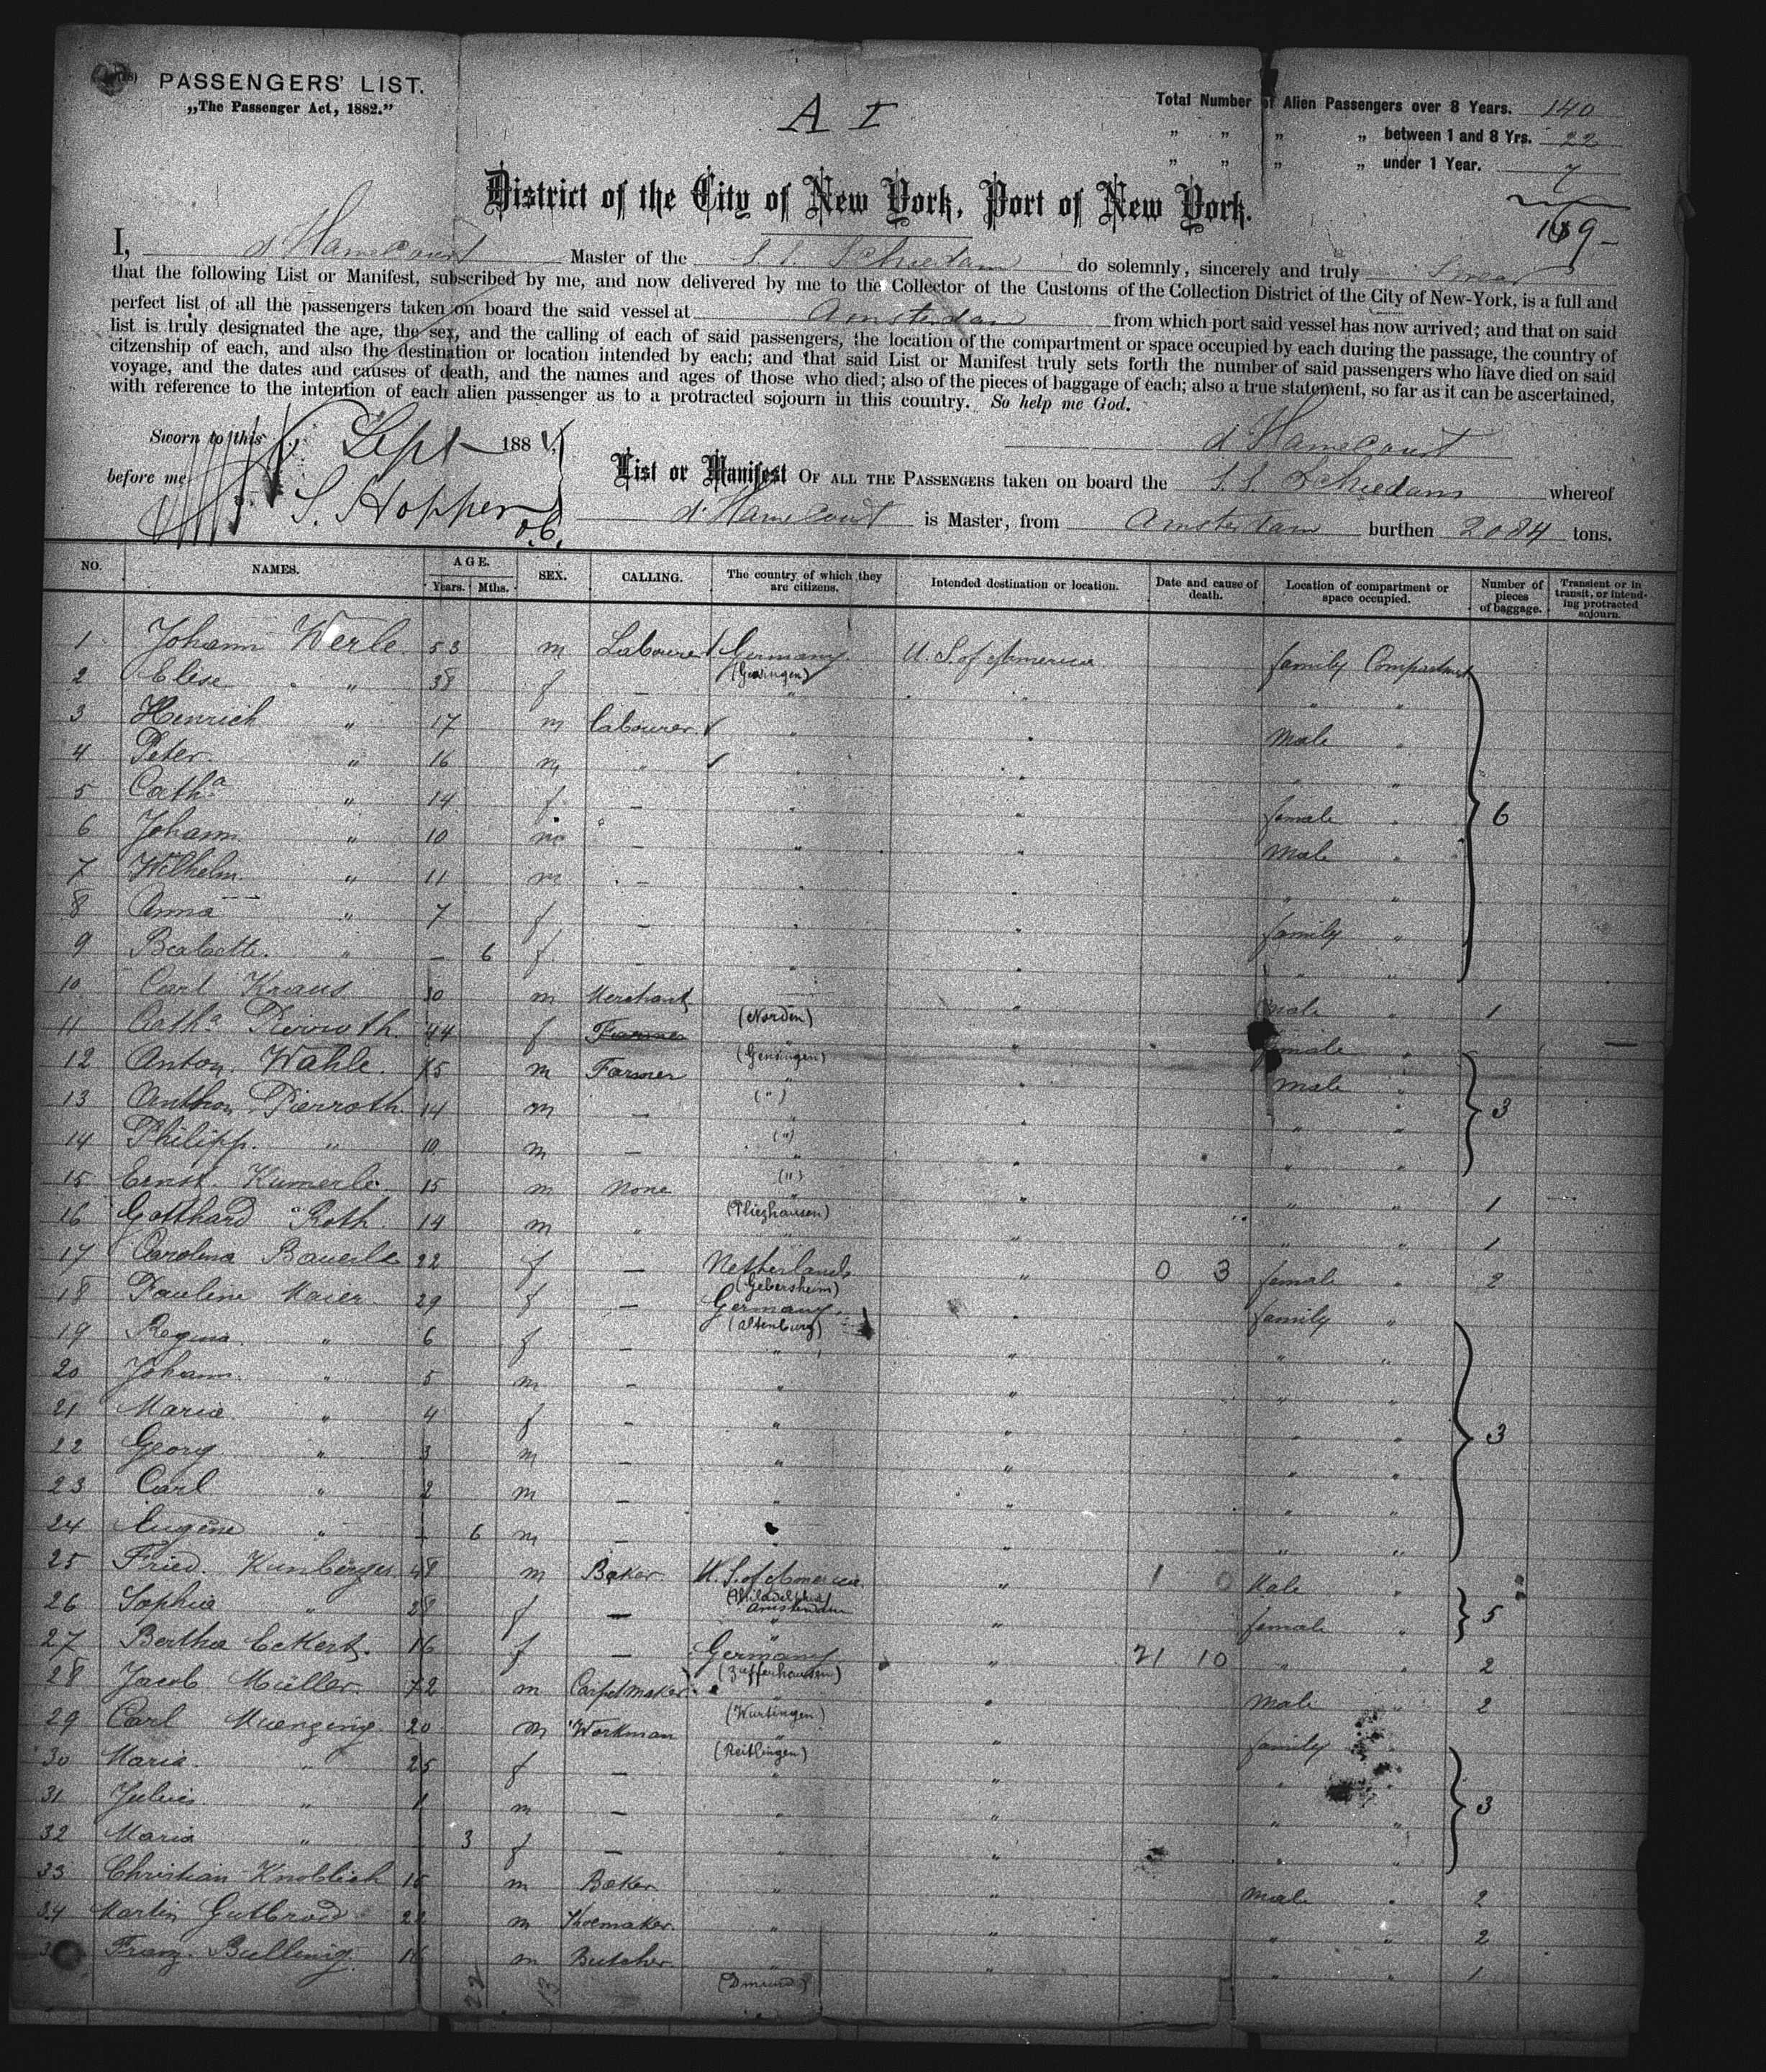 PASSENGERS' LIST.
„The Passenger Act, 1882.”
A I
Total Number of Alien Passengers over 8 Years. 140
„ „ „ „ between 1 and 8 Yrs. 22
„ „ „ „ under 1 Year. 7
169
District of the City of New York, Port of New York.
I, d'Hamecourt Master of the S.S. Schiedam do solemnly, sincerely and truly Swear
that the following List or Manifest, subscribed by me, and now delivered by me to the Collector of the Customs of the Collection District of the City of New-York, is a full and
perfect list of all the passengers taken on board the said vessel at Amsterdam from which port said vessel has now arrived; and that on said
list is truly designated the age, the sex, and the calling of each of said passengers, the location of the compartment or space occupied by each during the passage, the country of
citzenship of each, and also the destination or location intended by each; and that said List or Manifest truly sets forth the number of said passengers who have died on said
voyage, and the dates and causes of death, and the names and ages of those who died; also of the pieces of baggage of each; also a true statement, so far as it can be ascertained,
with reference to the intention of each alien passenger as to a protracted sojourn in this country. So help me God.
Sworn to this Sept 188
d'Hamecourt
before me S. Hopper
List or Manifest OF ALL THE PASSENGERS taken on board the S.S. Schiedam whereof
d'Hamecourt is Master, from Amsterdam burthen 2084 tons.
NO. NAMES. AGE. Years. Mths. SEX. CALLING. The country of which they are citizens. Intended destination or location. Date and cause of death. Location of compartment or space occupied. Number of pieces of baggage. Transient or in transit, or intending protracted sojourn.
1 Johann Werle 53 m Labourer Germany U.S. of America family Compartment
(Gensingen)
2 Elise „ 38 f — „ „ „ „
3 Henrich „ 17 m labourer „ „ male „
4 Peter „ 16 m „ „ „ „ „
5 Catha „ 14 f — „ „ female „ 6
6 Johann „ 10 m — „ „ male „
7 Wilhelm „ 11 m — „ „ „ „
8 Anna „ 7 f — „ „ family „
9 Babette „ — 6 f — „ „ „ „
10 Carl Kraus 30 m Merchant „ male „ 1
(Norden)
11 Catha Pierroth 44 f Farmer „ „ female „
(Gensingen)
12 Anton Wahle 15 m Farmer „ „ male „
(„)
13 Anthon Pierroth 14 m — „ „ „ „ 3
(„)
14 Philipp „ 10 m — „ „ „ „
(„)
15 Ernst Kumerle 15 m None „ „ „ „ 1
(Pliezhausen)
16 Gotthard Roth 14 m „ „ „ „ „ 1
17 Carolina Bauerle 22 f — Netherlands „ 0 3 female „ 2
(Gebersheim)
18 Pauline Maier 29 f — Germany „ family „
(Altenburg)
19 Regina „ 6 f — „ „ „ „
20 Johann „ 5 m — „ „ „ „
21 Maria „ 4 f — „ „ „ „ 3
22 Georg „ 3 m — „ „ „ „
23 Carl „ 2 m — „ „ „ „
24 Eugene „ — 6 m — „ „ „ „
25 Fried. Kunberger 48 m Baker U.S. of America „ 1 0 Male „
(Philadelphia)
Amsterdam
26 Sophie „ 28 f — „ „ female „ 5
27 Bertha Eckert 16 f — Germany „ 21 10 „ „ 2
(Zuffenhausen)
28 Jacob Müller 72 m Carpetmaker „ „ male „ 2
29 Carl Muenzing 20 m Workman „ „ family
(Reitlingen)
30 Maria „ 25 f — „ „ „ „
31 Julius „ 1 m — „ „ „ „ 3
32 Maria „ 3 f — „ „ „ „
33 Christian Knoblich 15 m Baker „ „ male „ 2
34 Martin Gutbrod 22 m Shoemaker „ „ „ „ 2
Franz Bulling 16 m Butcher „ „ „ „ 1
22 13